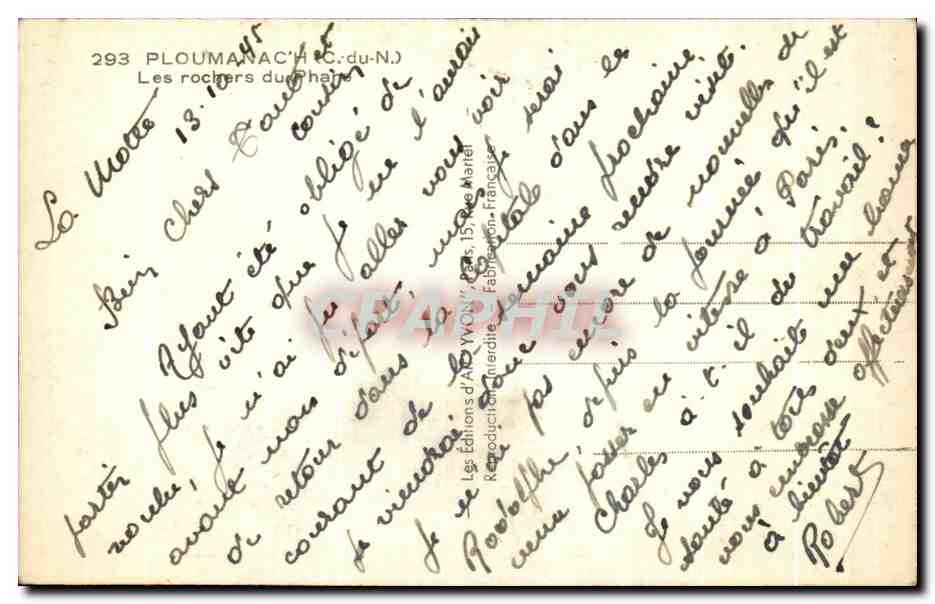 293 PLOUMANAC'H (C.-du-N.)
Les rochers du Phare
La Motte 13.10.45
Bien chers Tante et
cousin
Ayant été obligé de
partir plus vite que je ne l'aurai
voulu, je n'ai pu aller vous voir
avant mon départ, mais je serai
de retour dans la capitale dans le
courant de la semaine prochaine.
Je viendrai donc vous rendre visite.
Je n'ai pas encore de nouvelles de
Rodolphe, depuis la journée qu'il est
venu passer en vitesse à Paris.
Charles a-t-il du travail?
Je vous souhaite une bonne
santé à tous deux et
vous embrasse affectueusement
à bientôt
Robert
Les Éditions d'Art "YVON", Paris, 15, Rue Martel
Reproduction Interdite Fabrication Française
CPAPHIL